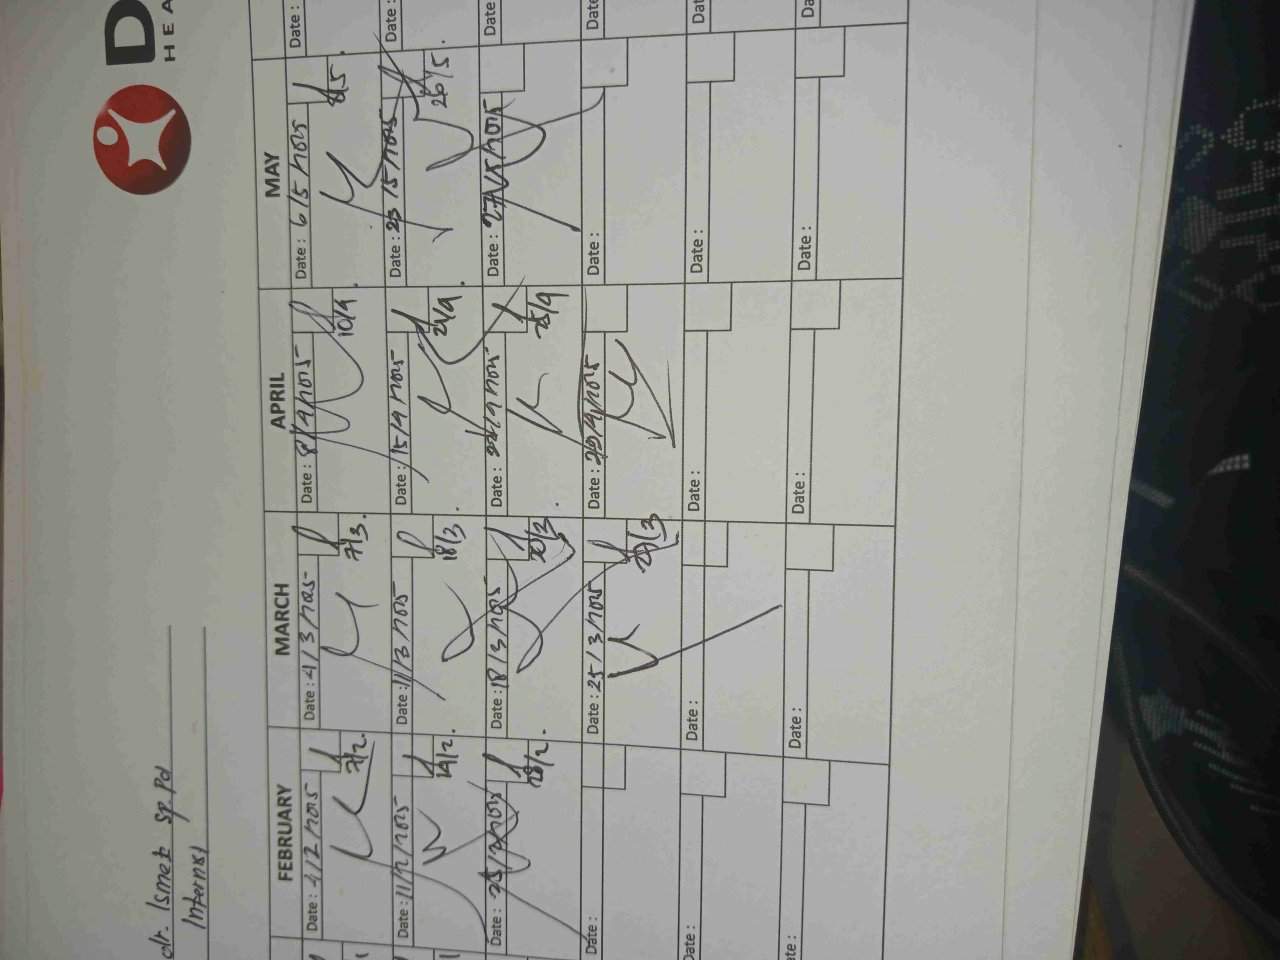 D
HEA
dr. Ismet Sp.Pd
Internist
FEBRUARY
MARCH
APRIL
MAY
Date : 4/2/2025
7/2.
Date : 4/3/2025
7/3.
Date : 8/4/2025
10/4.
Date : 6/5/2025
8/5.
Date :
Date : 11/2/2025
14/2.
Date : 11/3/2025
18/3.
Date : 15/4/2025
24/4.
Date : 23/5/2025
26/5.
Date :
Date : 25/2/2025
28/2.
Date : 18/3/2025
20/3.
Date : 22/4/2025
25/4.
Date : 27/5/2025
Date :
Date :
Date : 25/3/2025
27/3
Date : 29/4/2025
Date :
Date
Date :
Date :
Date :
Date :
Dat
te :
Date :
Date :
Date :
Da